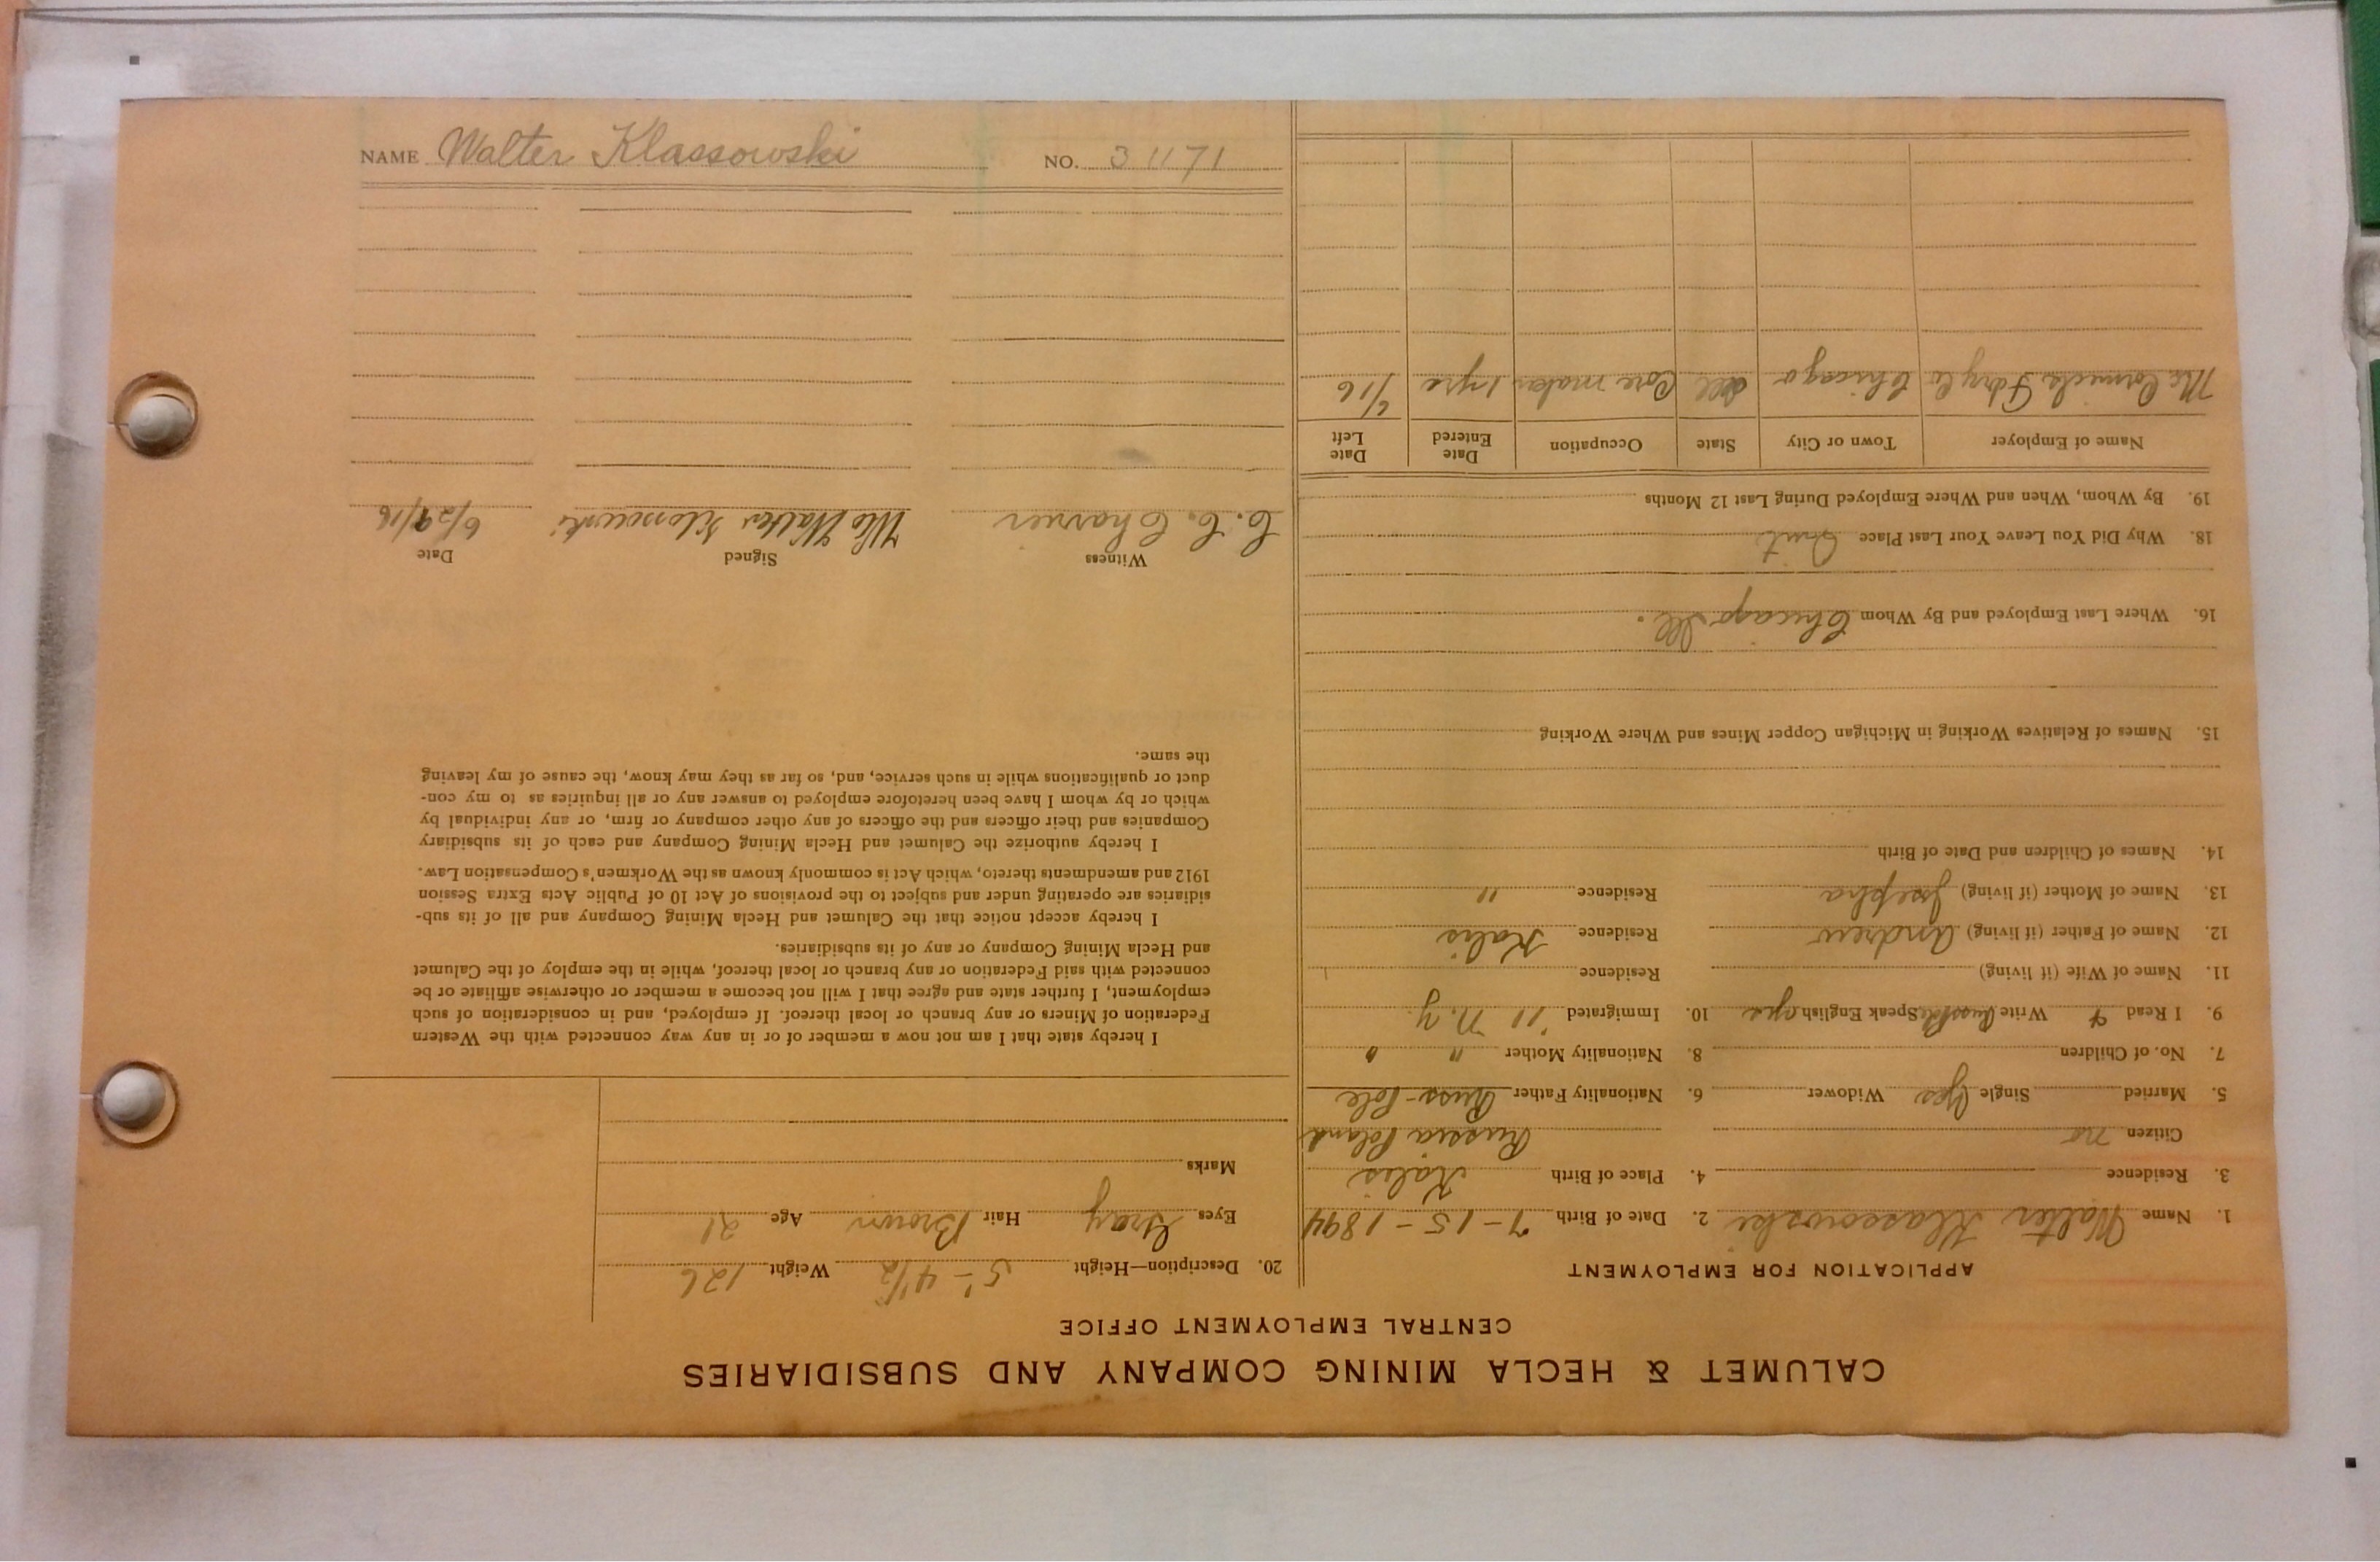 NAME Walter Klassowski NO. 31171
CALUMET & HECLA MINING COMPANY AND SUBSIDIARIES
CENTRAL EMPLOYMENT OFFICE
APPLICATION FOR EMPLOYMENT
1. Name Walter Klassowski 2. Date of Birth 7-15-1894
3. Residence 4. Place of Birth Kalis
Citizen no Russia Poland
5. Married Single Yes Widower 6. Nationality Father Russ-Pole
7. No. of Children 8. Nationality Mother " "
9. I Read & Write Russ Pole Speak English yes 10. Immigrated '11 N.Y.
11. Name of Wife (if living) Residence
12. Name of Father (if living) Andrew Residence Kalis
13. Name of Mother (if living) Josepha Residence "
14. Names of Children and Date of Birth
15. Names of Relatives Working in Michigan Copper Mines and Where Working
16. Where Last Employed and By Whom Chicago Ill.
18. Why Did You Leave Your Last Place Quit
19. By Whom, When and Where Employed During Last 12 Months
Name of Employer Town or City State Occupation Date Entered Date Left
Chicago Ill Core maker 1 yr 6/16
20. Description—Height 5'-4½" Weight 126
Eyes Gray Hair Brown Age 21
Marks
I hereby state that I am not now a member of or in any way connected with the Western
Federation of Miners or any branch or local thereof. If employed, and in consideration of such
employment, I further state and agree that I will not become a member or otherwise affiliate or be
connected with said Federation or any branch or local thereof, while in the employ of the Calumet
and Hecla Mining Company or any of its subsidiaries.
I hereby accept notice that the Calumet and Hecla Mining Company and all of its sub-
sidiaries are operating under and subject to the provisions of Act 10 of Public Acts Extra Session
1912 and amendments thereto, which Act is commonly known as the Workmen's Compensation Law.
I hereby authorize the Calumet and Hecla Mining Company and each of its subsidiary
Companies and their officers and the officers of any other company or firm, or any individual by
which or by whom I have been heretofore employed to answer any or all inquiries as to my con-
duct or qualifications while in such service, and, so far as they may know, the cause of my leaving
the same.
Witness Signed Date
C. C. Walter Klossowski 6/29/16